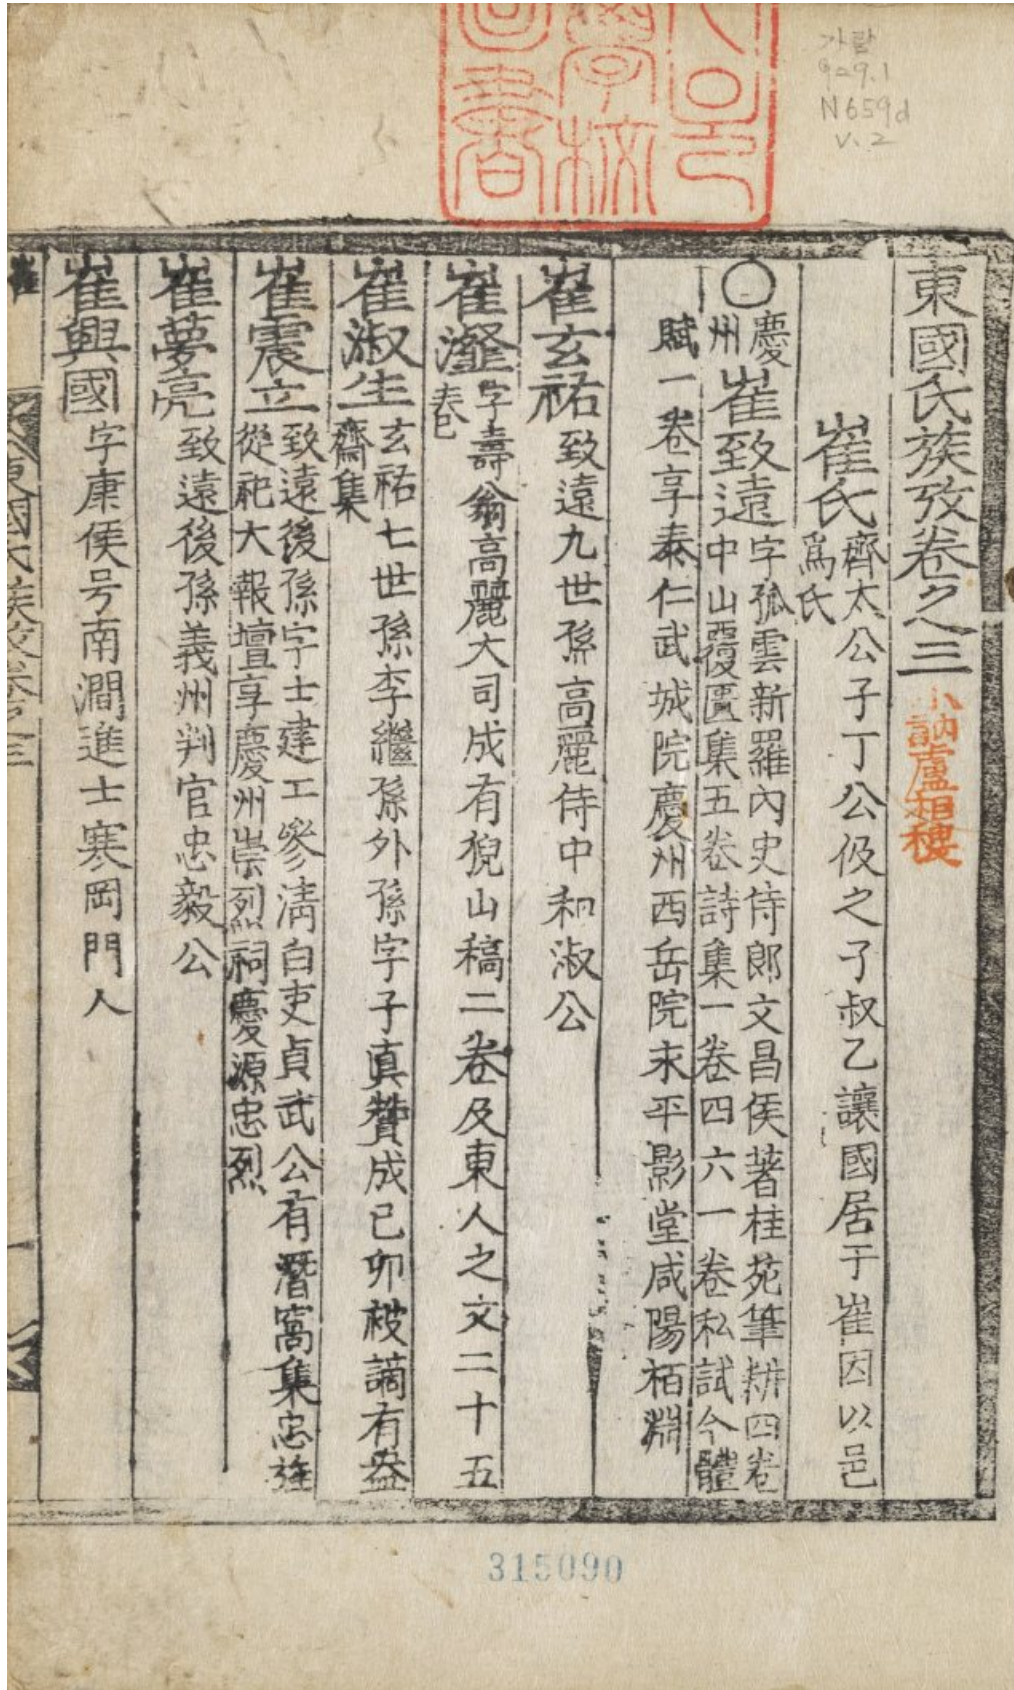 가람
929.1
N659d
v.2
東國氏族攷卷之三
小訥盧相稷
崔氏齊太公子丁公伋之子叔乙讓國居于崔因以邑
爲氏
○慶州崔致遠字孤雲新羅內史侍郎文昌侯著桂苑筆耕四卷
中山覆匱集五卷詩集一卷四六一卷私試今體
賦一卷享泰仁武城院慶州西岳院永平影堂咸陽栢淵
崔玄祐致遠九世孫高麗侍中和淑公
崔瀣字壽翁高麗大司成有猊山稿二卷及東人之文二十五
卷
崔淑生玄祐七世孫李繼孫外孫字子眞贊成己卯被謫有盎
齋集
崔震立致遠後孫字士建工參淸白吏貞武公有潛窩集忠
從祀大報壇享慶州崇烈祠慶源忠烈
崔夢亮致遠後孫義州判官忠毅公
崔興國字康侯号南澗進士寒岡門人
東國氏族攷卷之三
315090